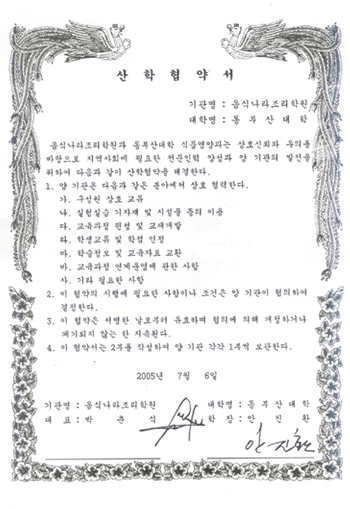 산 학 협 약 서
기관명 : 음식나라조리학원
대학명 : 동 부 산 대 학
음식나라조리학원과 동부산대학 식품영양과는 상호신뢰와 우의를
바탕으로 지역사회에 필요한 전문인력 양성과 양 기관의 발전을
위하여 다음과 같이 산학협약을 체결한다.
1. 양 기관은 다음과 같은 분야에서 상호 협력한다.
가. 구성원 상호 교류
나. 실험실습 기자재 및 시설물 등의 이용
다. 교육과정 편성 및 교재개발
라. 학생교류 및 학점 인정
마. 학술정보 및 교육자료 교환
바. 교육과정 연계운영에 관한 사항
사. 기타 필요한 사항
2. 이 협약의 시행에 필요한 사항이나 조건은 양 기관이 협의하여
결정한다.
3. 이 협약은 서명한 날로부터 유효하며 협의에 의해 개정하거나
폐기되지 않는 한 지속된다.
4. 이 협약서는 2부를 작성하여 양 기관 각각 1부씩 보관한다.
2005년 7월 6일
기관명 : 음식나라조리학원 대학명 : 동 부 산 대 학
대 표 : 박 춘 식 학 장 : 안 진 환
안 진환